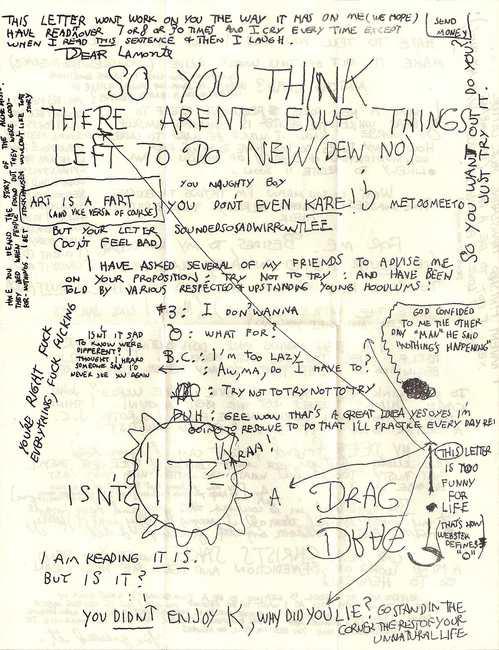 THIS LETTER WONT WORK ON YOU THE WAY IT HAS ON ME (WE HOPE)
HAVE READ IT OVER 7 OR 8 OR 90 TIMES AND I CRY EVERY TIME EXCEPT
WHEN I READ THIS SENTENCE & THEN I LAUGH.
SEND
MONEY
DEAR LAMONTE
SO YOU THINK
THERE ARENT ENUF THINGS
LEFT TO DO NEW (DEW NO)
SO YOU WANT OUT DO YOU?
JUST TRY IT.
HAVE YOU HEARD THE STORY OF THE
THEY DIED WHEN PEOPLE FOUND OUT THEY WERE GOOD
FOR NOTHING. I BET STOCKHAUSEN WOULDN'T LIKE THAT
STORY
ART IS A FART
(AND VICE VERSA OF COURSE)
YOU NAUGHTY BOY
YOU DON'T EVEN KARE!
MET OO MEE TO
BUT YOUR LETTER
(DON'T FEEL BAD)
SOUNDED SO SAD WIRROUNT LEE
I HAVE ASKED SEVERAL OF MY FRIENDS TO ADVISE ME
ON YOUR PROPOSITION: TRY NOT TO TRY: AND HAVE BEEN
TOLD BY VARIOUS RESPECTED & UPSTANDING YOUNG HOODLUMS:
#3: I DON'T WANNA
O: WHAT FOR?
B.C.: I'M TOO LAZY
: AW, MA, DO I HAVE TO?
: TRY NOT TO TRY NOT TO TRY
DUH: GEE WOW THAT'S A GREAT IDEA YES OYES I'M
GOING TO RESOLVE TO DO THAT I'LL PRACTICE EVERY DAY REI
ISN'T IT SAD
TO KNOW WE'RE
DIFFERENT? I
THOUGHT I HEARD
SOMEONE SAY I'D
NEVER SEE YOU AGAIN
YOU'RE RIGHT FUCK
EVERYTHING, FUCK FUCKING
GOD CONFIDED
TO ME THE OTHER
DAY "MAN" HE SAID
"NOTHING'S HAPPENING"
ISN'T
IT
TARAA!
A
DRAG
DRAG
THIS LETTER
IS TOO
FUNNY
FOR
LIFE
(THAT'S HOW
WEBSTER
DEFINES
"O")
I AM READING IT IS.
BUT IS IT?
YOU DIDN'T ENJOY K, WHY DID YOU LIE? GO STAND IN THE
CORNER THE REST OF YOUR
UNNATURAL LIFE